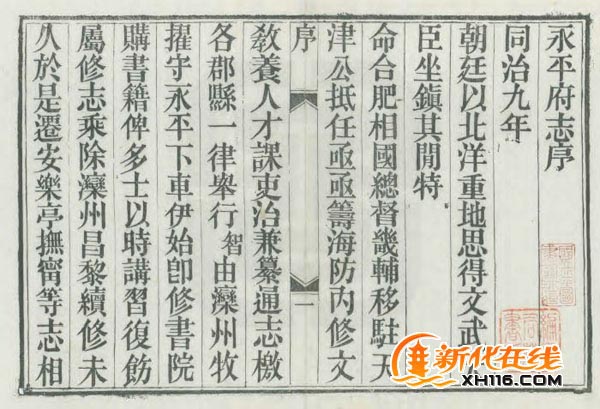 永平府志序
同治九年
朝廷以北洋重地思得文武
臣坐鎮其閒特
命合肥相國總督畿輔移駐天
津公抵任亟亟籌海防內修文
序
一
教養人才課吏治兼纂通志檄
各郡縣一律舉行智由灤州牧
擢守永平下車伊始卽修書院
購書籍俾多士以時講習復飭
屬修志乘除灤州昌黎續修未
久於是遷安樂亭撫甯等志相
新化在线
XH116.COM